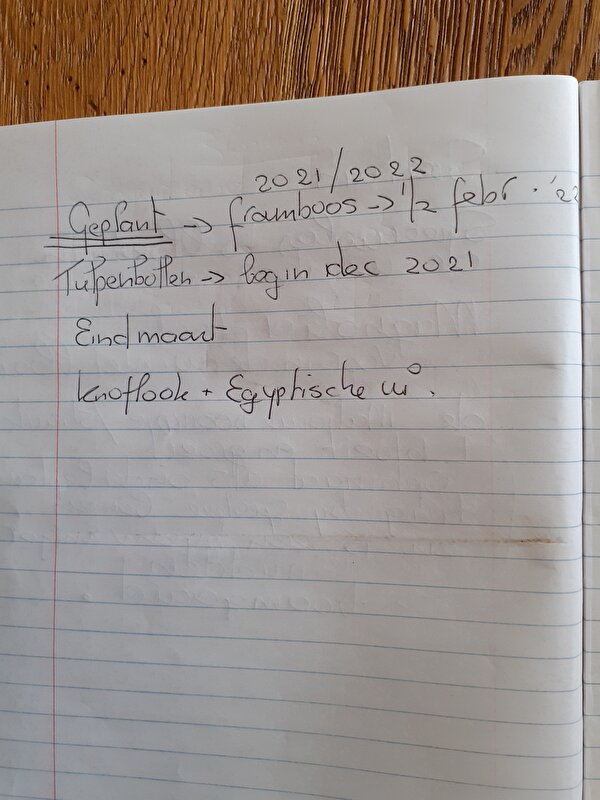 2021/2022
Geplant -> framboos -> 1/2 febr. '22
Tulpenbollen -> begin dec 2021
Eind maart
Knoflook + Egyptische ui°.